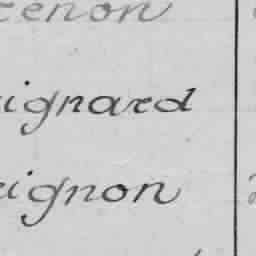 tenon
ignard
ignon